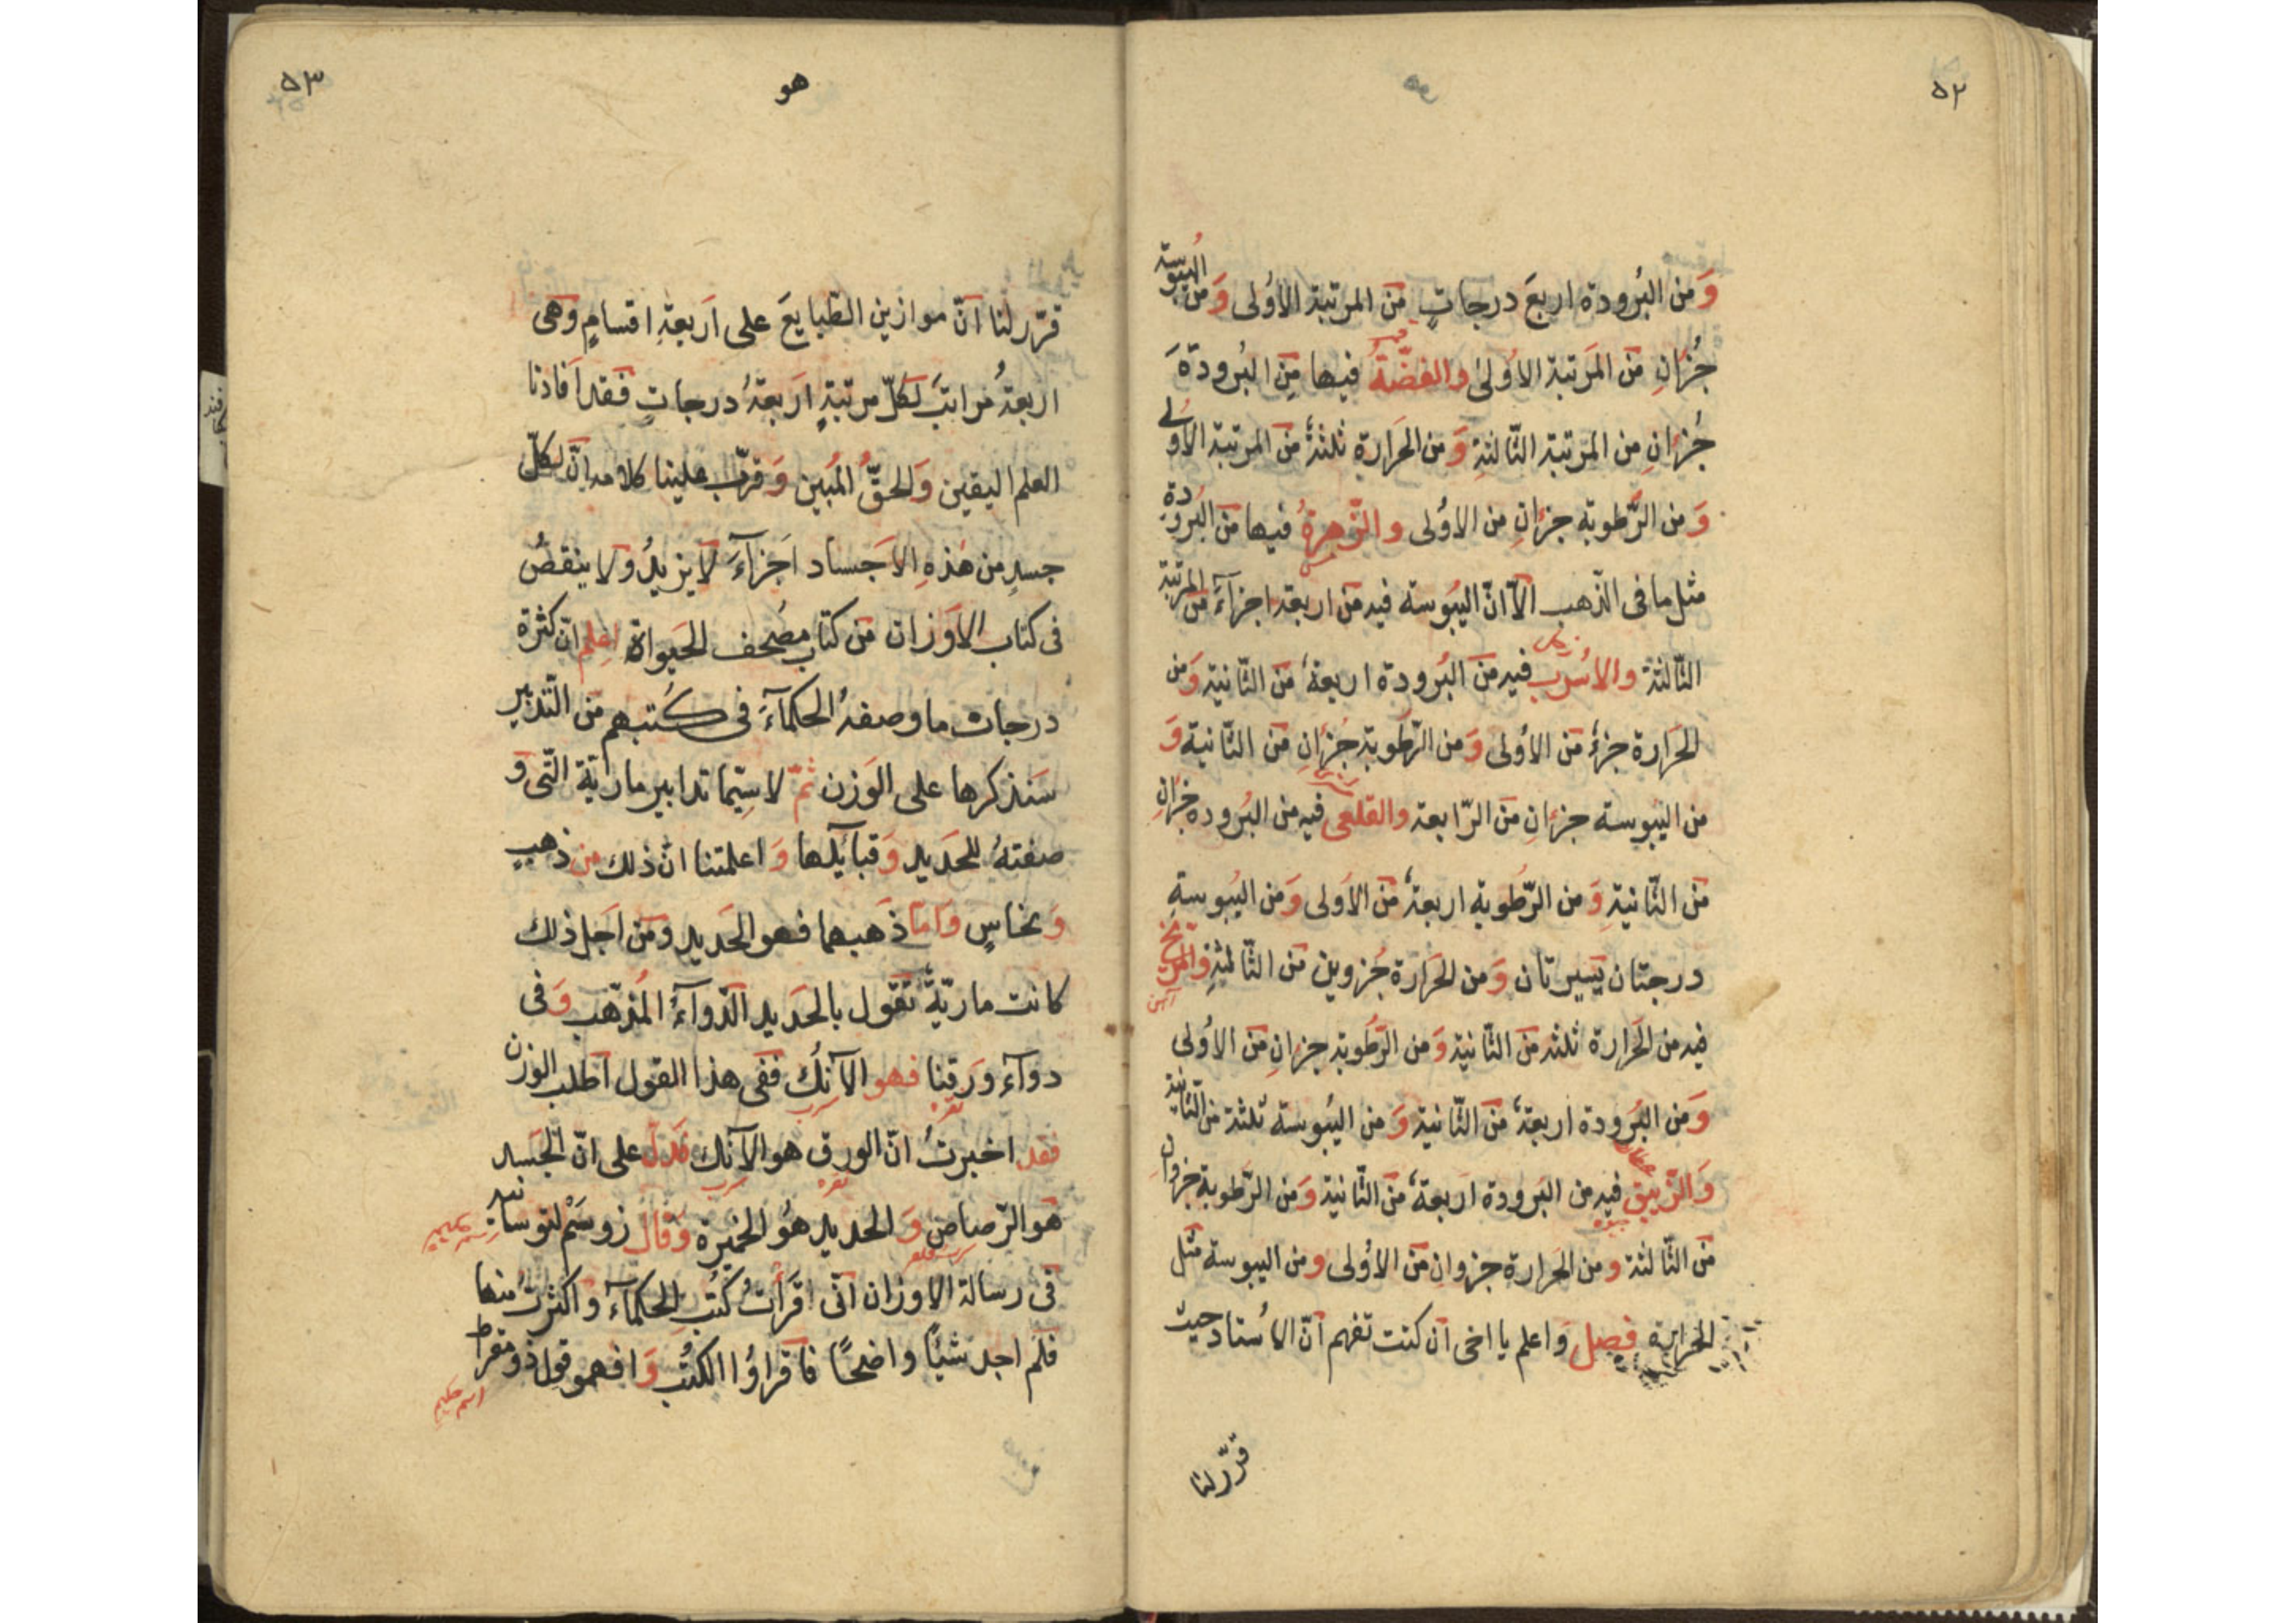 ٥٢
وَمن البُرودة اربعَ درجاتٍ مَن المرتبة الاُولى وَمن اليبُوسة
جُزانِ مَن المَرتبة الاُولىٰ والفضّةُ فيها مِنَ البُرودةَ
قمر
جُزانِ من المرتبة الثّالثةِ وَ من الحَرارةِ ثلثةٌ مَن المرتبة الاُولى
وَ من الرُّطوبة جزانِ من الاُولى والزّهرةُ فيها مَن البُرودةِ
مس
مثل ما فى الذّهب الّا انّ اليبُوسة فيه مَن اربعة اجزآءَ مَن المرتبة
الثّالثة والاُسرُب فيه مَن البُرودة اربعةٌ مَن الثّانية وَمن
زحل
الحَرارة جزءٌ مَن الاُولى وَ من الرّطوبة جُزانِ مَن الثّانية وَ
من اليبوسة جزانِ مَن الرّابعة والقلعى فيه من البُرودة جزانِ
مَن الثّانيةِ وَ من الرّطُوبة اربعةٌ مَن الاُولى وَمن اليُبوسةِ
درجتان يَسيرتان وَ من الحَرارة جُزوين مَن الثّالثةِ والمرّيخ
آهن
فيه من الحَرارة ثلثة مَن الثّانية وَ من الرّطُوبة جزانِ مَن الاُولى
وَ من البُرودة اربعةٌ مَن الثّانية وَ من اليُبوسة ثلثة من الثّانية
عطارد
وَالزّيبق فيه من البَرودة اربعةٌ مَن الثّانية وَمن الرّطوبة جزوانِ
جيوه
مَن الثّالثة و من الحَرارة جزوانِ مَن الاُولى ومن اليبوسة مثل
الحَرارة فصل وَاعلم يا اخى اَن كنت تفهم اَنّ الاُستاد حيث
قرّر لنا
٥٣
هو
قرّر لنا اَنّ موازين الطّبايعَ على اَربعةِ اقسامٍ وَهَى
اربعةُ مَراتبَ لكلّ مرتبةٍ اَربعةُ درجاتٍ فَقد اَفادنا
العلم اليقين وَالحقُّ المُبين وَ قرّب علينا كلامه اِنّ لكلّ
جسدٍ من هٰذهِ الاَجساد اَجزآءَ لا يزيدُ ولا ينقصُ
فى كتاب الاَوزان مَن كتاب مصُحف الحَيوة اعلم انّ كثرة
درجات ما وصفهُ الحكمآءَ فى كُتبهم مَن التّدبير
سَنذكرها على الوَزن ثمّ لا سيّما تدابير مارّيّة التّى وَ
صفتهُ للحَديد وَ قبائلها وَ اعلمتنا انّ ذلك من ذهبٍ
وَ نحاسٍ وَاَمّا ذَهبهما فهو الحَديد ومَن اَجل ذلك
كانت ماريّةٌ تَقول بالحَديد الدّوآءُ المُذهّب وَ فى
دوآء وَرقنا فهو الآنك ففى هذا القول اطلب الوزن
نقره
سرب
فقد اخبرتُ انّ الورق هو الآنك فَدلّ على انّ الجَسد
نقره
سرب
هَو الرّصاص وَ الحديد هوُ الخَميرة وَقال زوسَمْ لتوسانيه
فى رسالة الاوزان انّى اقَرأتُ كُتُب الحكمآء و اكثرتُ منها
فلم اجد شيئًا واضحًا فاقراؤُا الكتُب وَ افهمو قول ذومقراط
اسم حكيم